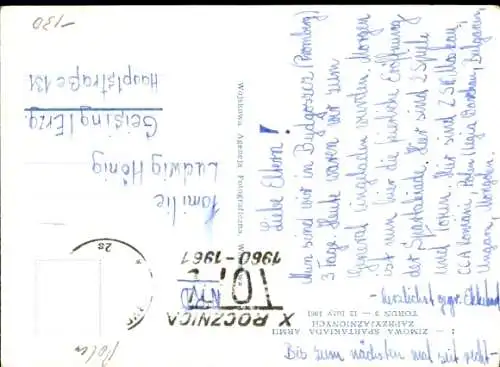 Liebe Eltern!
Nun sind wir in Bydgoszcz (Bromberg)
3 Tage. Heute waren wir zum
General eingeladen worden. Morgen
ist nun hier die feierliche Eröffnung
der Spartakiade. Hier sind 2 Spiele
und Torun. Hier sind ZSK Moskau,
CCA Rumänien, Polen Legia Warschau, Bulgarien,
Ungarn,
- Herzlichst gegr. Ekkehard
Bis zum nächsten mal seit recht -
Familie
Ludwig Hönig
Geising/Erzg.
Hauptstraße 131
-130
Wojskowa Agencja Fotograficzna
I - ZIMOWA SPARTAKIADA ARMII
ZAPRZYJAŹNIONYCH
TORUŃ 3 - 12 luty 1961
X ROCZNICA
1960-1961
Polen